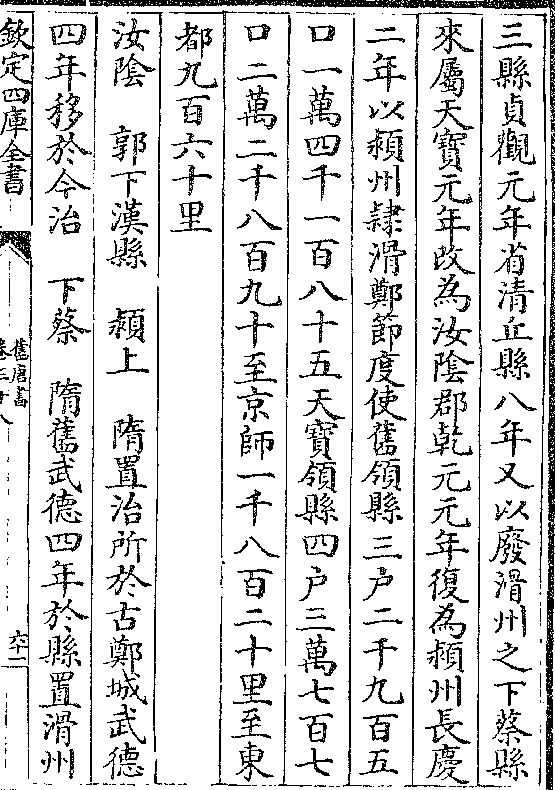 三縣貞觀元年省清丘縣八年又以廢滑州之下蔡縣
來屬天寶元年改為汝陰郡乾元元年復為潁州長慶
二年以潁州隸滑鄭節度使舊領縣三户二千九百五
口一萬四千一百八十五天寶領縣四户三萬七百七
口二萬二千八百九十至京師一千八百二十里至東
都九百六十里
汝陰 郭下漢縣 潁上 隋置治所於古鄭城武德
四年移於今治 下蔡 隋舊武德四年於縣置滑州
欽定四庫全書
舊唐書
卷三十八
六十二